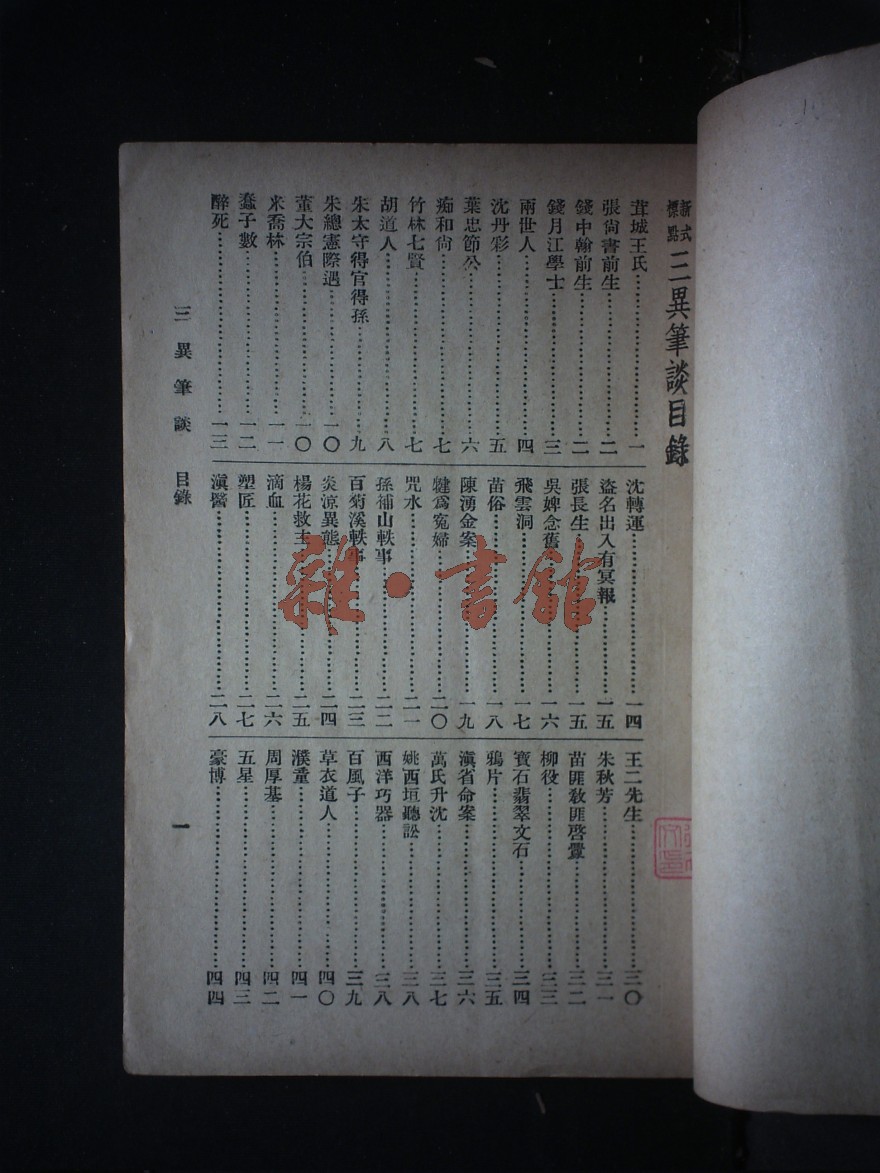 新式標點 三異筆談目錄
茸城王氏……一
張尚書前生……二
錢中翰前生……二
錢月江學士……三
兩世人……四
沈丹彩……五
葉忠節公……六
痴和尚……七
竹林七賢……七
胡道人……八
朱太守得官得孫……九
朱總憲際遇……一〇
董大宗伯……一〇
米喬林……一一
蠢子數……一二
醉死……一三
沈轉運……一四
盜名出入有冥報……一五
張長生……一五
吳婢念舊……一六
飛雲洞……一七
苗俗……一八
陳湧金案……一九
犍爲寃婦……二〇
咒水……二一
孫補山軼事……二二
百菊溪軼事……二三
炎涼異態……二四
楊花救主……二五
滴血……二六
塑匠……二七
滇醫……二八
王二先生……三〇
朱秋芳……三一
苗匪敎匪啓釁……三二
柳役……三三
寶石翡翠文石……三四
鴉片……三五
滇省命案……三六
萬氏升沈……三七
姚西垣聽訟……三八
西洋巧器……三八
百風子……三九
草衣道人……四〇
濮童……四一
周厚基……四二
五星……四三
豪博……四四
三異筆談 目錄
一
雜·書館